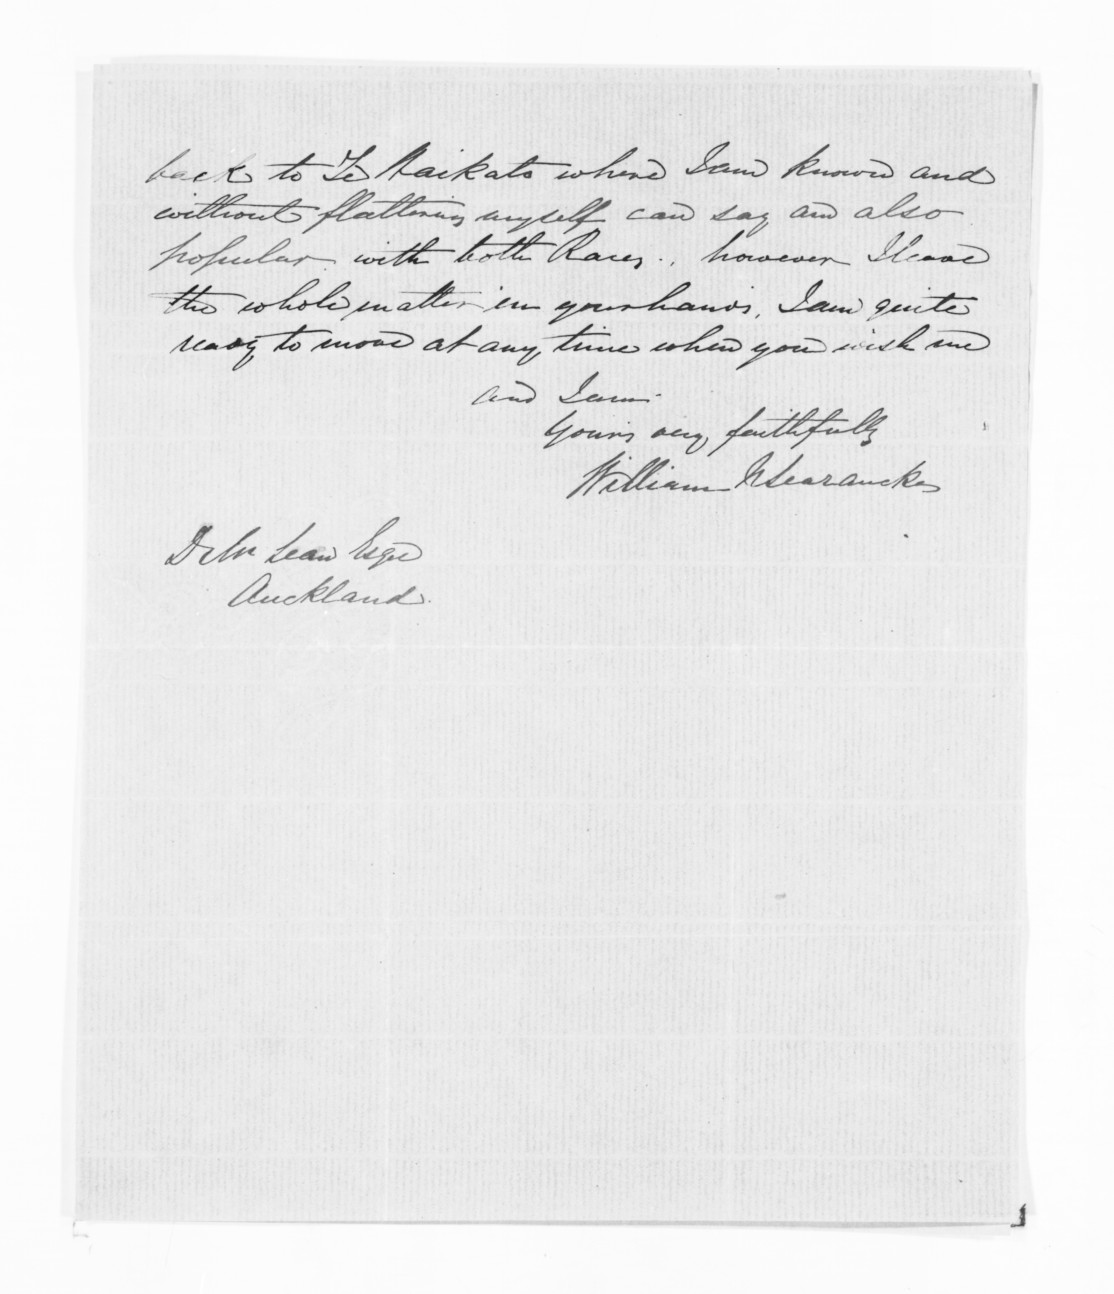 back to Te Waikato where I am known and
without flattering myself can say am also
popular with both Races., however I leave
the whole matter in your hands, I am quite
ready to move at any time when you wish me
and I am
Yours very faithfully
William N Searancke
D McLean Esqre
Auckland.